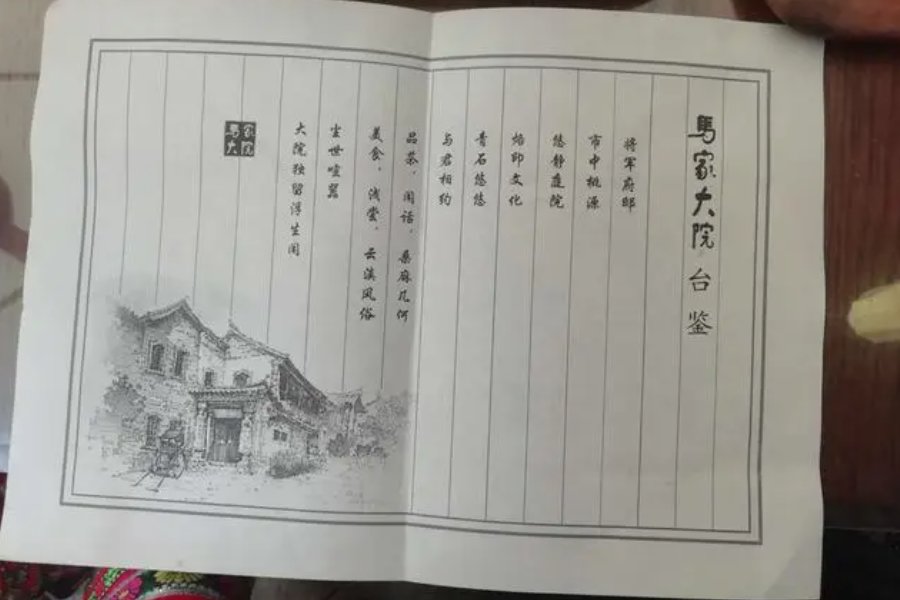 馬家大院 台鉴
将军府邸
市中桃源
悠静庭院
烙印文化
青石悠悠
与君相约
品茶，闲话，桑麻几何
美食，浅尝，云滇风俗
尘世喧嚣
大院独留浮生闲
馬家大院